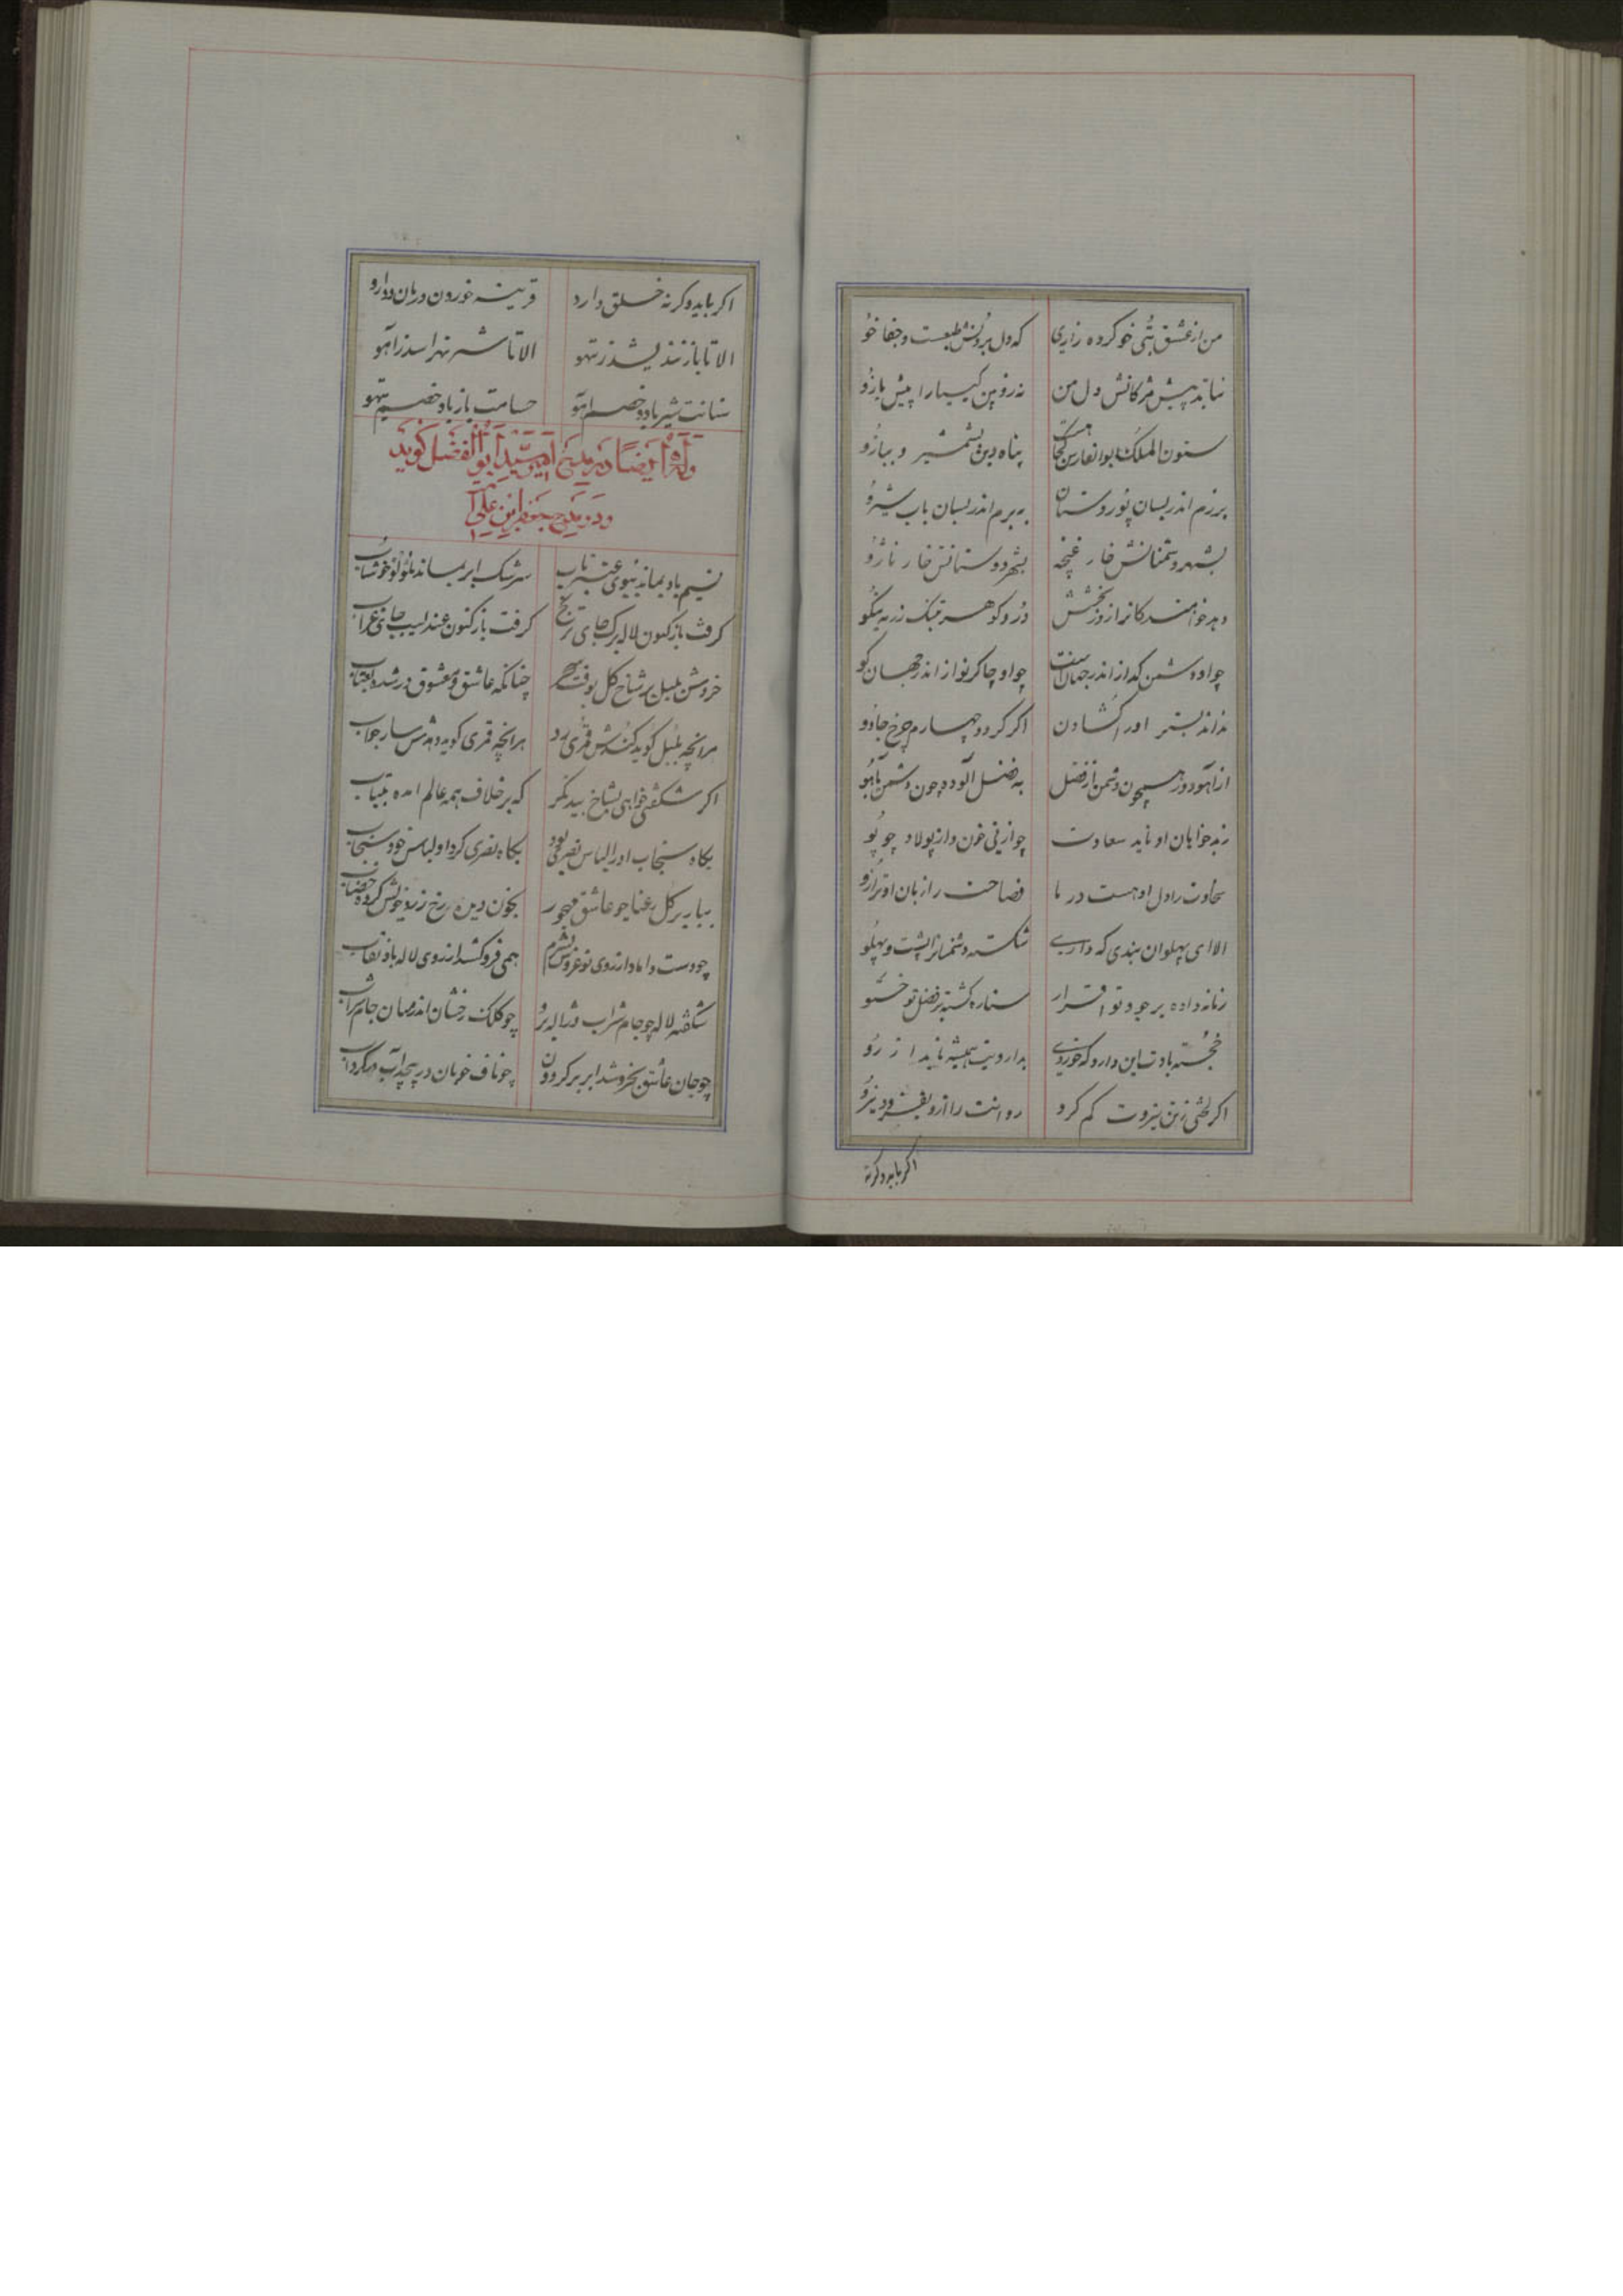 من از عشق بتی خو کرده زاری که دل بردنش طبعست و جفا خو
نتابد پیش مژکانش دل من نه روئین کیسیا را پیش بازو
ستون الملک ابوالفارس کجا هست پناه دین بشمشیر و ببازو
برزم اندر بسان پور دستان به بزم اندر بسان باب شیرو
بشهر دشمنانش خار غنچه بشهر دوستانش خار نارو
دهد خواهندکانرا روز بخشش در و کوهر تنک زر به نیکو
چو او دشمن کداز اندر جهان نیست چو او چاکر نواز اندر جهان کو
نداند بستر او را کشادن اکر کردد چهارم چرخ جادو
از آهو دور همچون دشمن از فضل به فضل آلوده چون دشمن به آهو
زبدخواهان او ناید سعادت چو از نی خون و از پولاد چو بو
سخاوت را دل او هست دریا فصاحت را زبان او ترازو
الا ای پهلوان بندی که داری شکسته دشمنانرا پشت و پهلو
زمانه داده بر جود تو اقرار ستاره کشته بر فضل تو خستو
خجسته بادت این دارو که خوردی بدارویت همیشه باید از رو
اکر لختی ز تن نیروت کم کرد روانت را ازو بفزود نیرو
اکر باید وکرنه
اکر باید وکرنه خلق دارد قرینه خوردن درمان و دارو
الا تا باز نندیشد ز تیهو الا تا شیر نهراسد ز آهو
سنانت شیر باد و خصم آهو حسامت باز باد و خصم تیهو
وله ایضا در مدح امیر سید ابوالفضل کوید
و در مدح جعفر ابن علی
نسیم باد بماند ببوی عنبر ناب سرشک ابر بماند بلؤلؤ خوشاب
کرفت باز کنون لاله برک جای ترنج کرفت باز کنون عندلیب جای غراب
خروش بلبل بر شاخ کل بوقت سحر چنانکه عاشق و معشوق در شده بعتاب
هرانچه بلبل کوید کندش قمری رد هرانچه قمری کوید دهدش سار جواب
اکر شکفتی خواهی بشاخ بید نکر که بر خلاف همه عالم امده بثیاب
بکاه سنجاب او را لباس نصری بود بکاه نصری کرد او لباس خود سنجاب
ببار بر کل رعنا چو عاشق مهجور بخون دیده رخ زرد خویش کرده خضاب
چو دست داماد از روی نو عروس بشرم همی فرو کشد از روی لاله باد نقاب
شکفته لاله چو جام شراب و ژاله برو چو کلک رخشان اندر میان جام شراب
چو جان عاشق بخروشد ابر بر کردون چو ناف خوبان در پیچد آب در کرداب